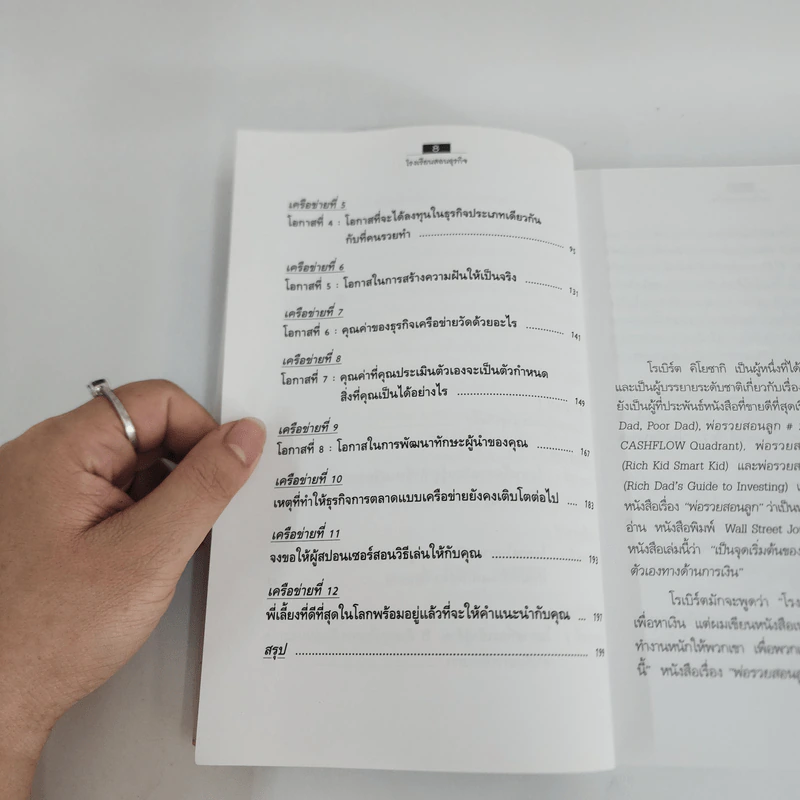 8
โรงเรียนสอนธุรกิจ
เครือข่ายที่ 5
โอกาสที่ 4 : โอกาสที่จะได้ลงทุนในธุรกิจประเภทเดียวกัน
กับที่คนรวยทำ ........ 95
เครือข่ายที่ 6
โอกาสที่ 5 : โอกาสในการสร้างความฝันให้เป็นจริง ........ 131
เครือข่ายที่ 7
โอกาสที่ 6 : คุณค่าของธุรกิจเครือข่ายวัดด้วยอะไร ........ 141
เครือข่ายที่ 8
โอกาสที่ 7 : คุณค่าที่คุณประเมินตัวเองจะเป็นตัวกำหนด
สิ่งที่คุณเป็นได้อย่างไร ........ 149
เครือข่ายที่ 9
โอกาสที่ 8 : โอกาสในการพัฒนาทักษะผู้นำของคุณ ........ 167
เครือข่ายที่ 10
เหตุที่ทำให้ธุรกิจการตลาดแบบเครือข่ายยังคงเติบโตต่อไป .... 183
เครือข่ายที่ 11
จงขอให้ผู้สปอนเซอร์สอนวิธีเล่นให้กับคุณ ........ 193
เครือข่ายที่ 12
พี่เลี้ยงที่ดีที่สุดในโลกพร้อมอยู่แล้วที่จะให้คำแนะนำกับคุณ ... 197
สรุป ........ 199
โรเบิร์ต คิโยซากิ เป็นผู้หนึ่งที่ได้
และเป็นผู้บรรยายระดับชาติเกี่ยวกับเรื่อง
ยังเป็นผู้ที่ประพันธ์หนังสือที่ขายดีที่สุด
Dad, Poor Dad), พ่อรวยสอนลูก #
CASHFLOW Quadrant), พ่อรวย
(Rich Kid Smart Kid) และพ่อรวย
(Rich Dad's Guide to Investing)
หนังสือเรื่อง "พ่อรวยสอนลูก" ว่าเป็น
อ่าน หนังสือพิมพ์ Wall Street
หนังสือเล่มนี้ว่า "เป็นจุดเริ่มต้นของ
ตัวเองทางด้านการเงิน"
โรเบิร์ตมักจะพูดว่า "โรง
เพื่อหาเงิน แต่ผมเขียนหนังสือ
ทำงานหนักให้พวกเขา เพื่อพวก
นี้" หนังสือเรื่อง "พ่อรวยสอน